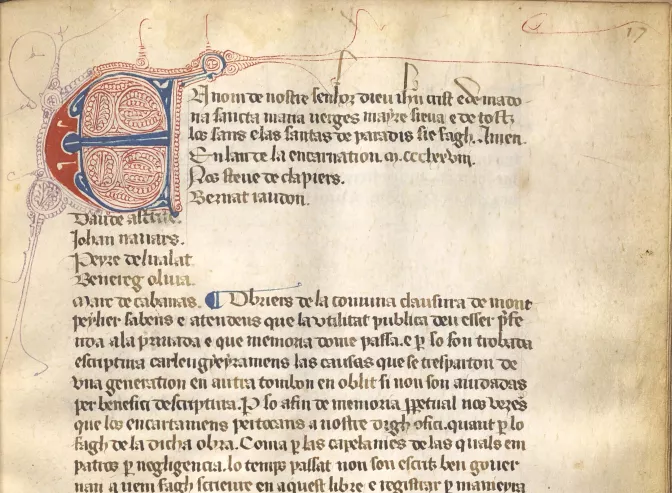 17
En nom de nostre senhor dieu ihu crist e de mado
na sancta maria verges mayre sieua e de totz
los sans e las santas de paradis sie fagh. Amen.
En lan de la encarnation. m. cccc lxviii.
Nos steue de clapiers.
Bernat iaudon.
Daude
Johan nauars.
Peyre delualat.
Benezeg oliua.
Marc de cabanas. Obriers de la comuna clausura de mont
peylier sabens e atendens que la vtilitat publica deu esser pfe
rida a la priuada e que memoria dome passa. e p so son trobada
escriptura car leugyeyramens las causas que se tresparton de
vna generation en autra tombon en oblit si non son aiudadas
per benefici descriptura. P so afin de memoria ppetual nos
que los encartamens pertocans a nostre digh ofici. quant p lo
fagh de la dicha obra. Coma p las capelanies de las quals em
patros p negligencia. lo temps passat non son escrits ben gouer
nan auem fagh scrieure en aquest libre e registrar p maniera